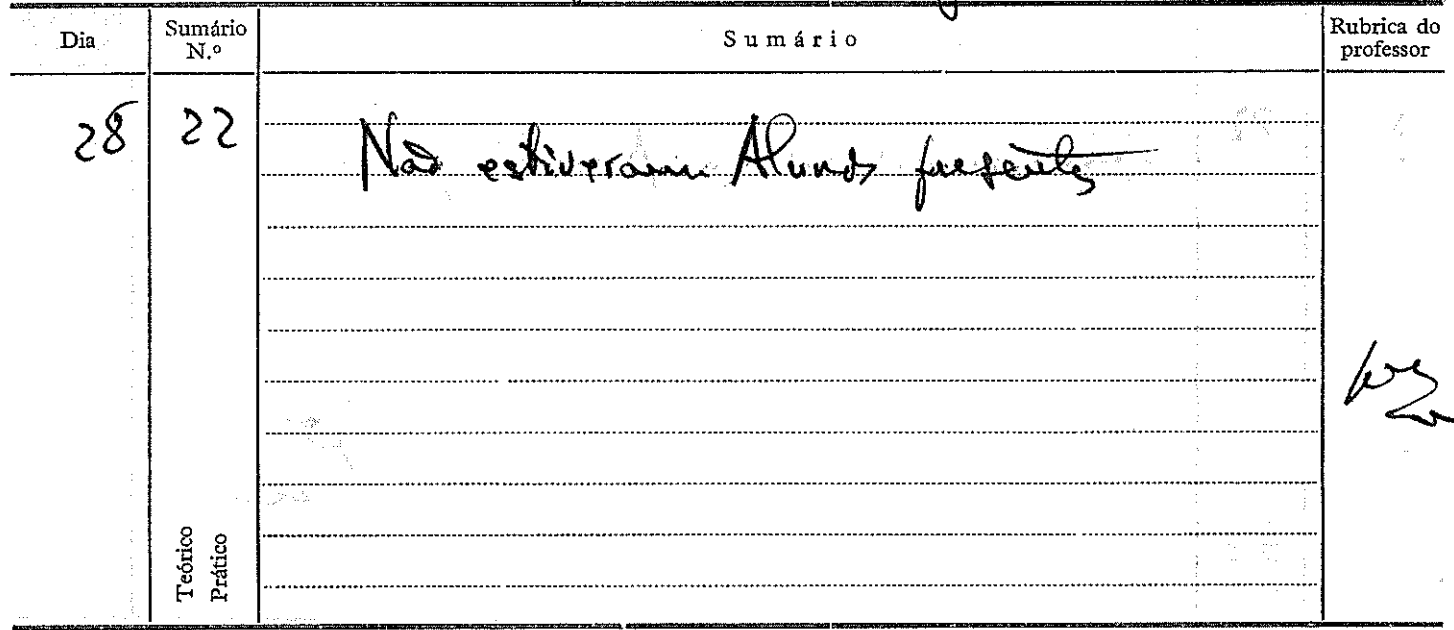 Dia Sumário N.º Sumário Rubrica do professor
28 22 Não estiveram Alunos presentes
Teórico
Prático